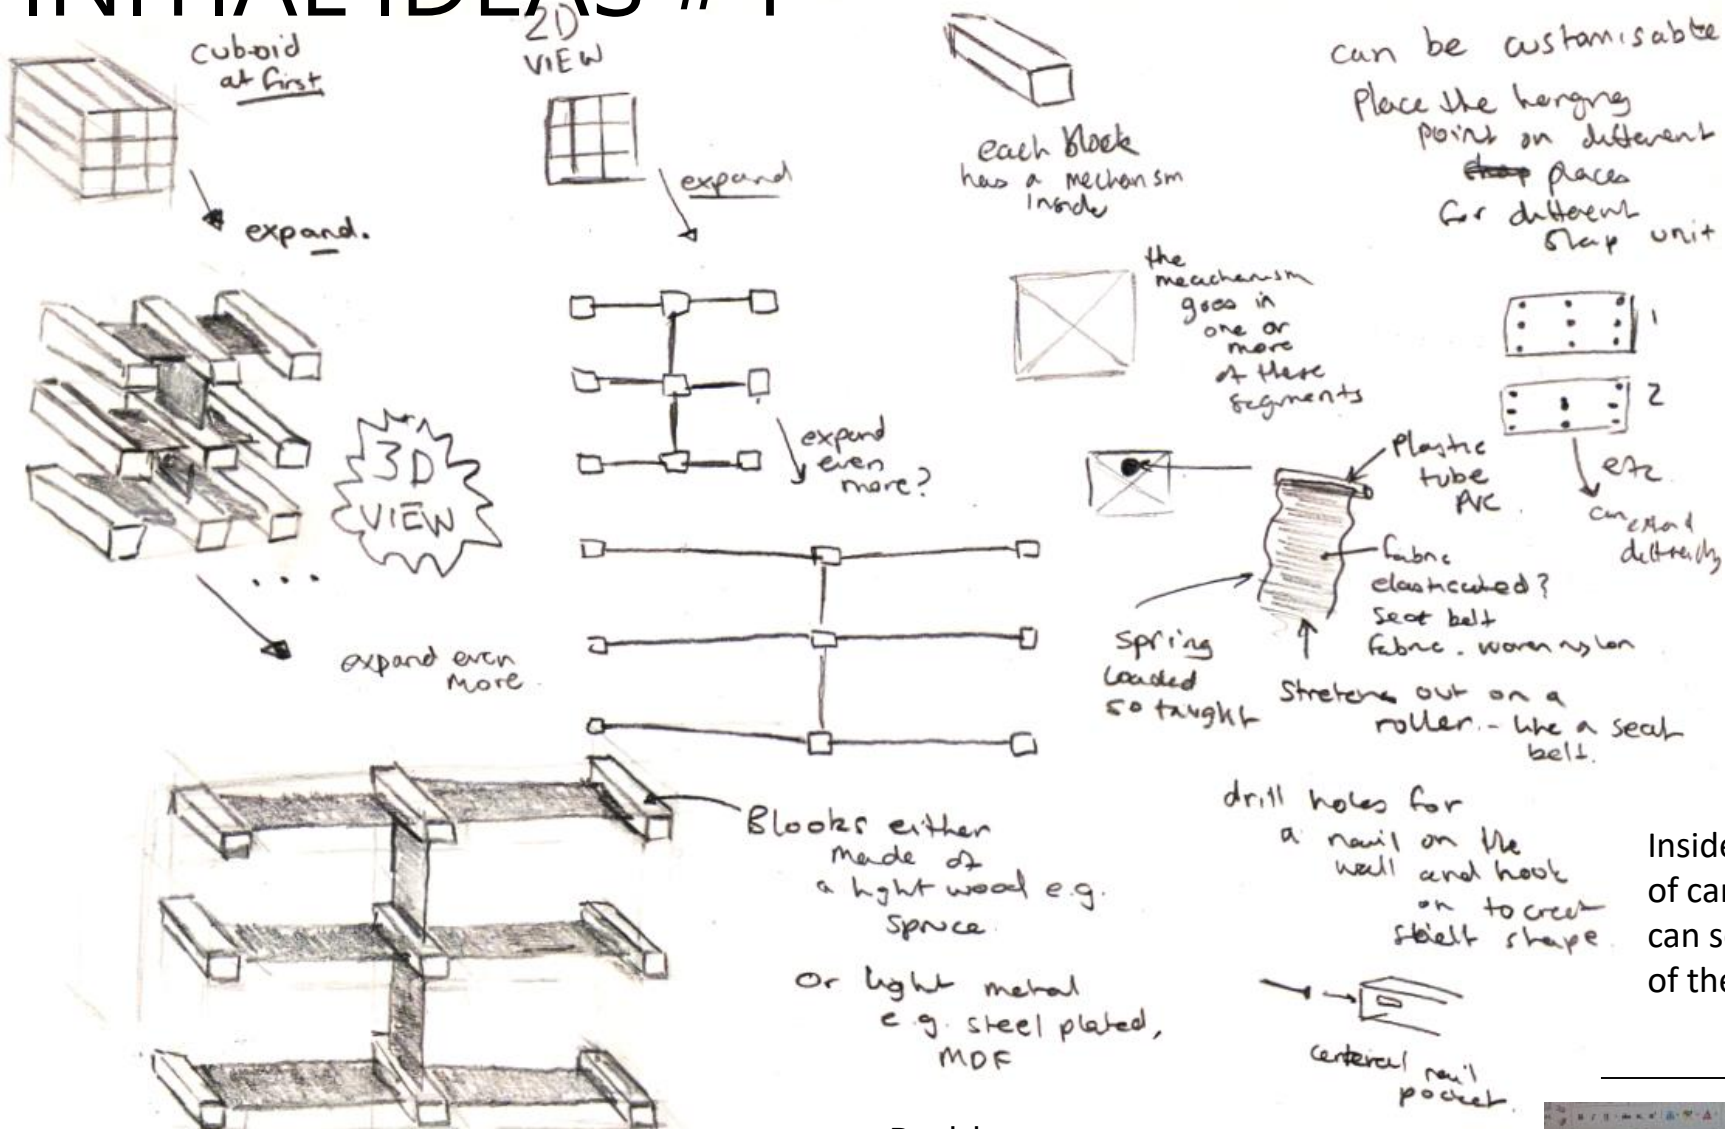 INITIAL IDEAS #1
cuboid
at first
expand.
3D
VIEW
expand even
more
2D
VIEW
expand
expand
even
more?
each block
has a mechanism
inside
the
meachanism
goes in
one or
more
of these
segments
can be customisable
Place the hanging
point on different
places
for different
unit
1
2
etc
can extend
Plastic
tube
PVC
fabric
elasticated?
Seat belt
fabric. woven nylon
Spring
loaded
so taught
Stretches out on a
roller. - like a seat
belt.
Blocks either
made of
a light wood e.g.
spruce
Or light metal
e.g. steel plated,
MDF
drill holes for
a nail on the
wall and hook
on to creat
shape
nail
pocket.
Inside
of car
can s
of the